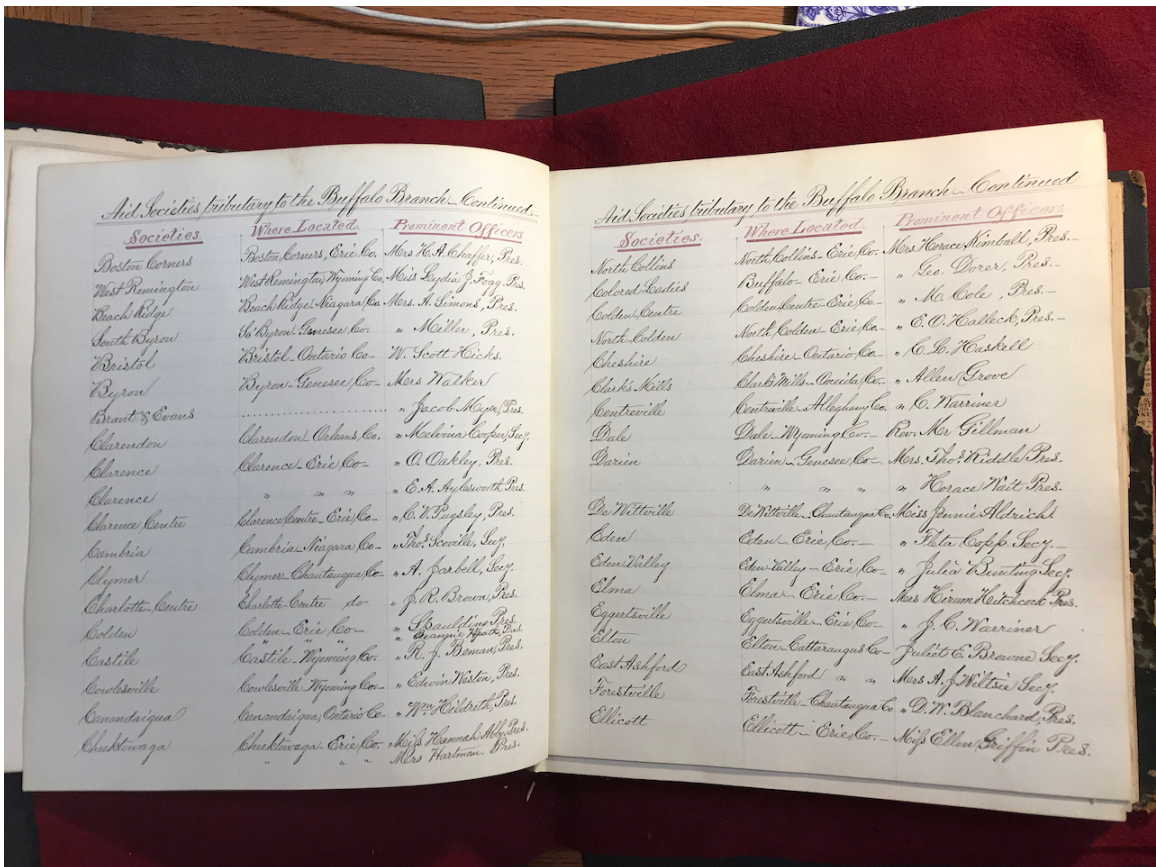 Aid Societies tributary to the Buffalo Branch - Continued -
Societies. Where Located. Prominent Officers
Boston Corners Boston Corners, Erie Co. Mrs H. A. Chaffer, Pres.
West Remington West Remington Wyoming Co. Miss Lydia J. Fogg, Pres.
Beach Ridge Beach Ridge, Niagara Co. Mrs. A. Simons, Pres.
South Byron So Byron Genesee Co. " Miller, Pres.
Bristol Bristol - Ontario Co - W. Scott Hicks.
Byron Byron - Genesee Co - Mrs Walker
Brant & Evans .................... " Jacob Pres.
Clarendon Clarendon Orleans, Co. " Malvina Cooper, Secy.
Clarence Clarence - Erie Co - " O. Oakley, Pres.
Clarence " " " " E. A. Aylesworth Pres.
Clarence Centre Clarence Centre - Erie Co - " C. V. Pugsley, Pres.
Cambria Cambria Niagara Co - " Thos. Scoville, Secy
Clymer Clymer - Chautauqua Co - " A. Jarbell, Secy.
Charlotte Centre Charlotte Centre do " J. R. Brown, Pres.
Colden Colden - Erie Co - " Spaulding Pres.
" " " " Heath, Pres.
Castile Castile - Wyoming Co. " R. J. Beman, Pres.
Cowlesville Cowlesville Wyoming Co - " Edwin Weston, Pres.
Canandaigua Canandaigua, Ontario Co - " Wm Hildreth, Pres.
Cheektowaga Cheektowaga Erie, Co. Miss Hannah Abby, Pres.
" " " Mrs Hartman Pres.
Aid Societies tributary to the Buffalo Branch - Continued
Societies. Where Located. Prominent Officers
North Collins North Collins - Erie Co. Mrs. Horace Kimball, Pres.
Colored Ladies Buffalo - Erie Co. - " Geo. Dorer, Pres. -
Colden Centre Colden Centre - Erie Co - " M. Cole, Pres. -
North Colden North Colden - Erie, Co - " E. O. Halleck, Pres. -
Cheshire Cheshire - Ontario Co. - " C. L. Haskell
Clark's Mills Clark's Mills - Oneida, Co - " Allen Grove
Centreville Centreville - Alleghany Co. " C. Warriner
Dale Dale - Wyoming Co. - Rev. Mr Gillman
Darien Darien - Genesee Co - Mrs. Thos. Riddle Pres.
" " " " Horace Wait Pres.
De Wittville De Wittville - Chautauqua Co. Miss Jennie Aldrich.
Eden Eden - Erie Co. - " Fleta Copp. Secy. -
Eden Valley Eden Valley - Erie, Co - " Julia Bunting Secy.
Elma Elma - Erie Co. - Mrs Hiram Hitchcock Pres.
Eggertsville Eggertsville - Erie Co - " J. C. Warriner
Elton Elton - Cattaraugus Co - Juliet E. Browne Secy.
East Ashford East Ashford " " Mrs A. J. Wiltsie Secy.
Forestville Forestville - Chautauqua Co " D. W. Blanchard, Pres.
Ellicott Ellicott - Erie Co - Miss Ellen Griffin Pres.